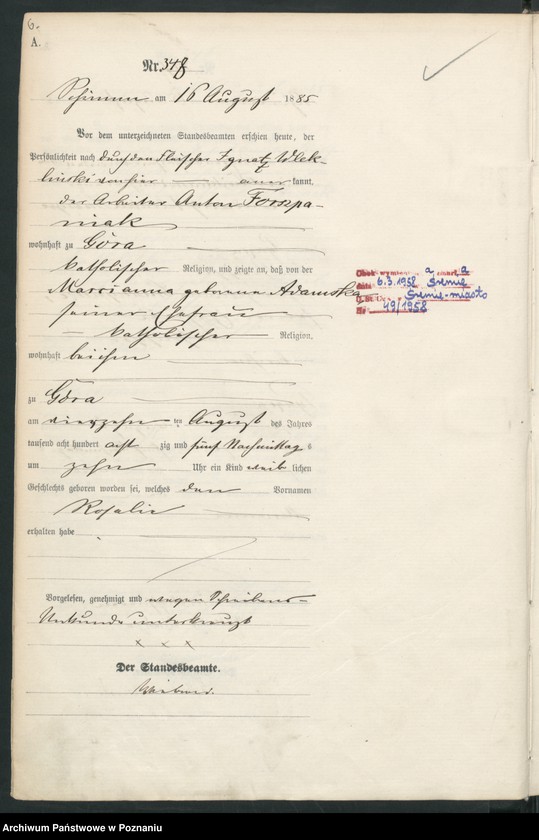 6.
A.
Nr. 348
Schrimm am 16 August 1885
Vor dem unterzeichneten Standesbeamten erschien heute, der
Persönlichkeit nach durch den Fleischer Ignatz
von hier aner kannt,
der Arbeiter Anton Forszpa-
niak
wohnhaft zu Góra
katholischer Religion, und zeigte an, daß von der
Marrianna geborene Adamska
seiner Ehefrau
katholischer Religion,
wohnhaft bei ihm
zu Góra
am vierzehn ten August des Jahres
tausend acht hundert acht zig und fünf Nachmittag s
um zehn Uhr ein Kind weib lichen
Geschlechts geboren worden sei, welches den Vornamen
Rosalie
erhalten habe
Vorgelesen, genehmigt und wegen Schreibens-
Unkunde unterkreuzt
x x x
Der Standesbeamte.
a a
6.3.1958 Śremie
Śremie-miasto
Nr 49/1958
Archiwum Państwowe w Poznaniu